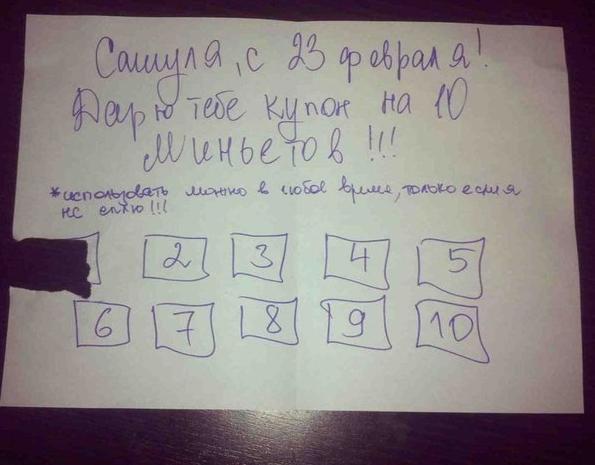 Сашуля, с 23 февраля!
Дарю тебе купон на 10
Миньетов!!!
*использовать можно в любое время, только если я
не сплю!!!
2 3 4 5
6 7 8 9 10